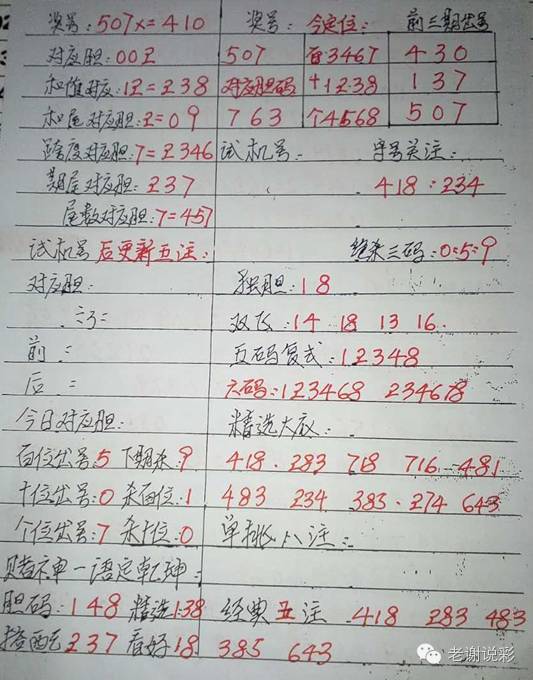 奖号:507x=410 奖号: 今定位: 前三期出号
对应胆:00Z 507 百3467 430
和值对应:12=238 对应胆码 十1238 137
和尾对应胆:2=09 763 个4568 507
跨度对应胆:7=2346 试机号: 字号关注:
期尾对应胆:237 418:234
尾数对应胆:7=457
试机号后更新五注: 绝杀三码:0:5:9
对应胆: 独胆:18
双飞:14 18 13 16.
前 = 五码复式:12348
后 = 六码:123468 234678
今日对应胆: 精选大底:
百位出号:5 下期杀:9 418. 283 718 716 481
十位出号:0 杀百位:1 483 234 383. 274 643
个位出号:7 杀十位:0 单挑八注:
赌神一语定乾坤:
胆码:148 精选138 经典五注 418 283 483
搭配237 看好18 385 643
老谢说彩